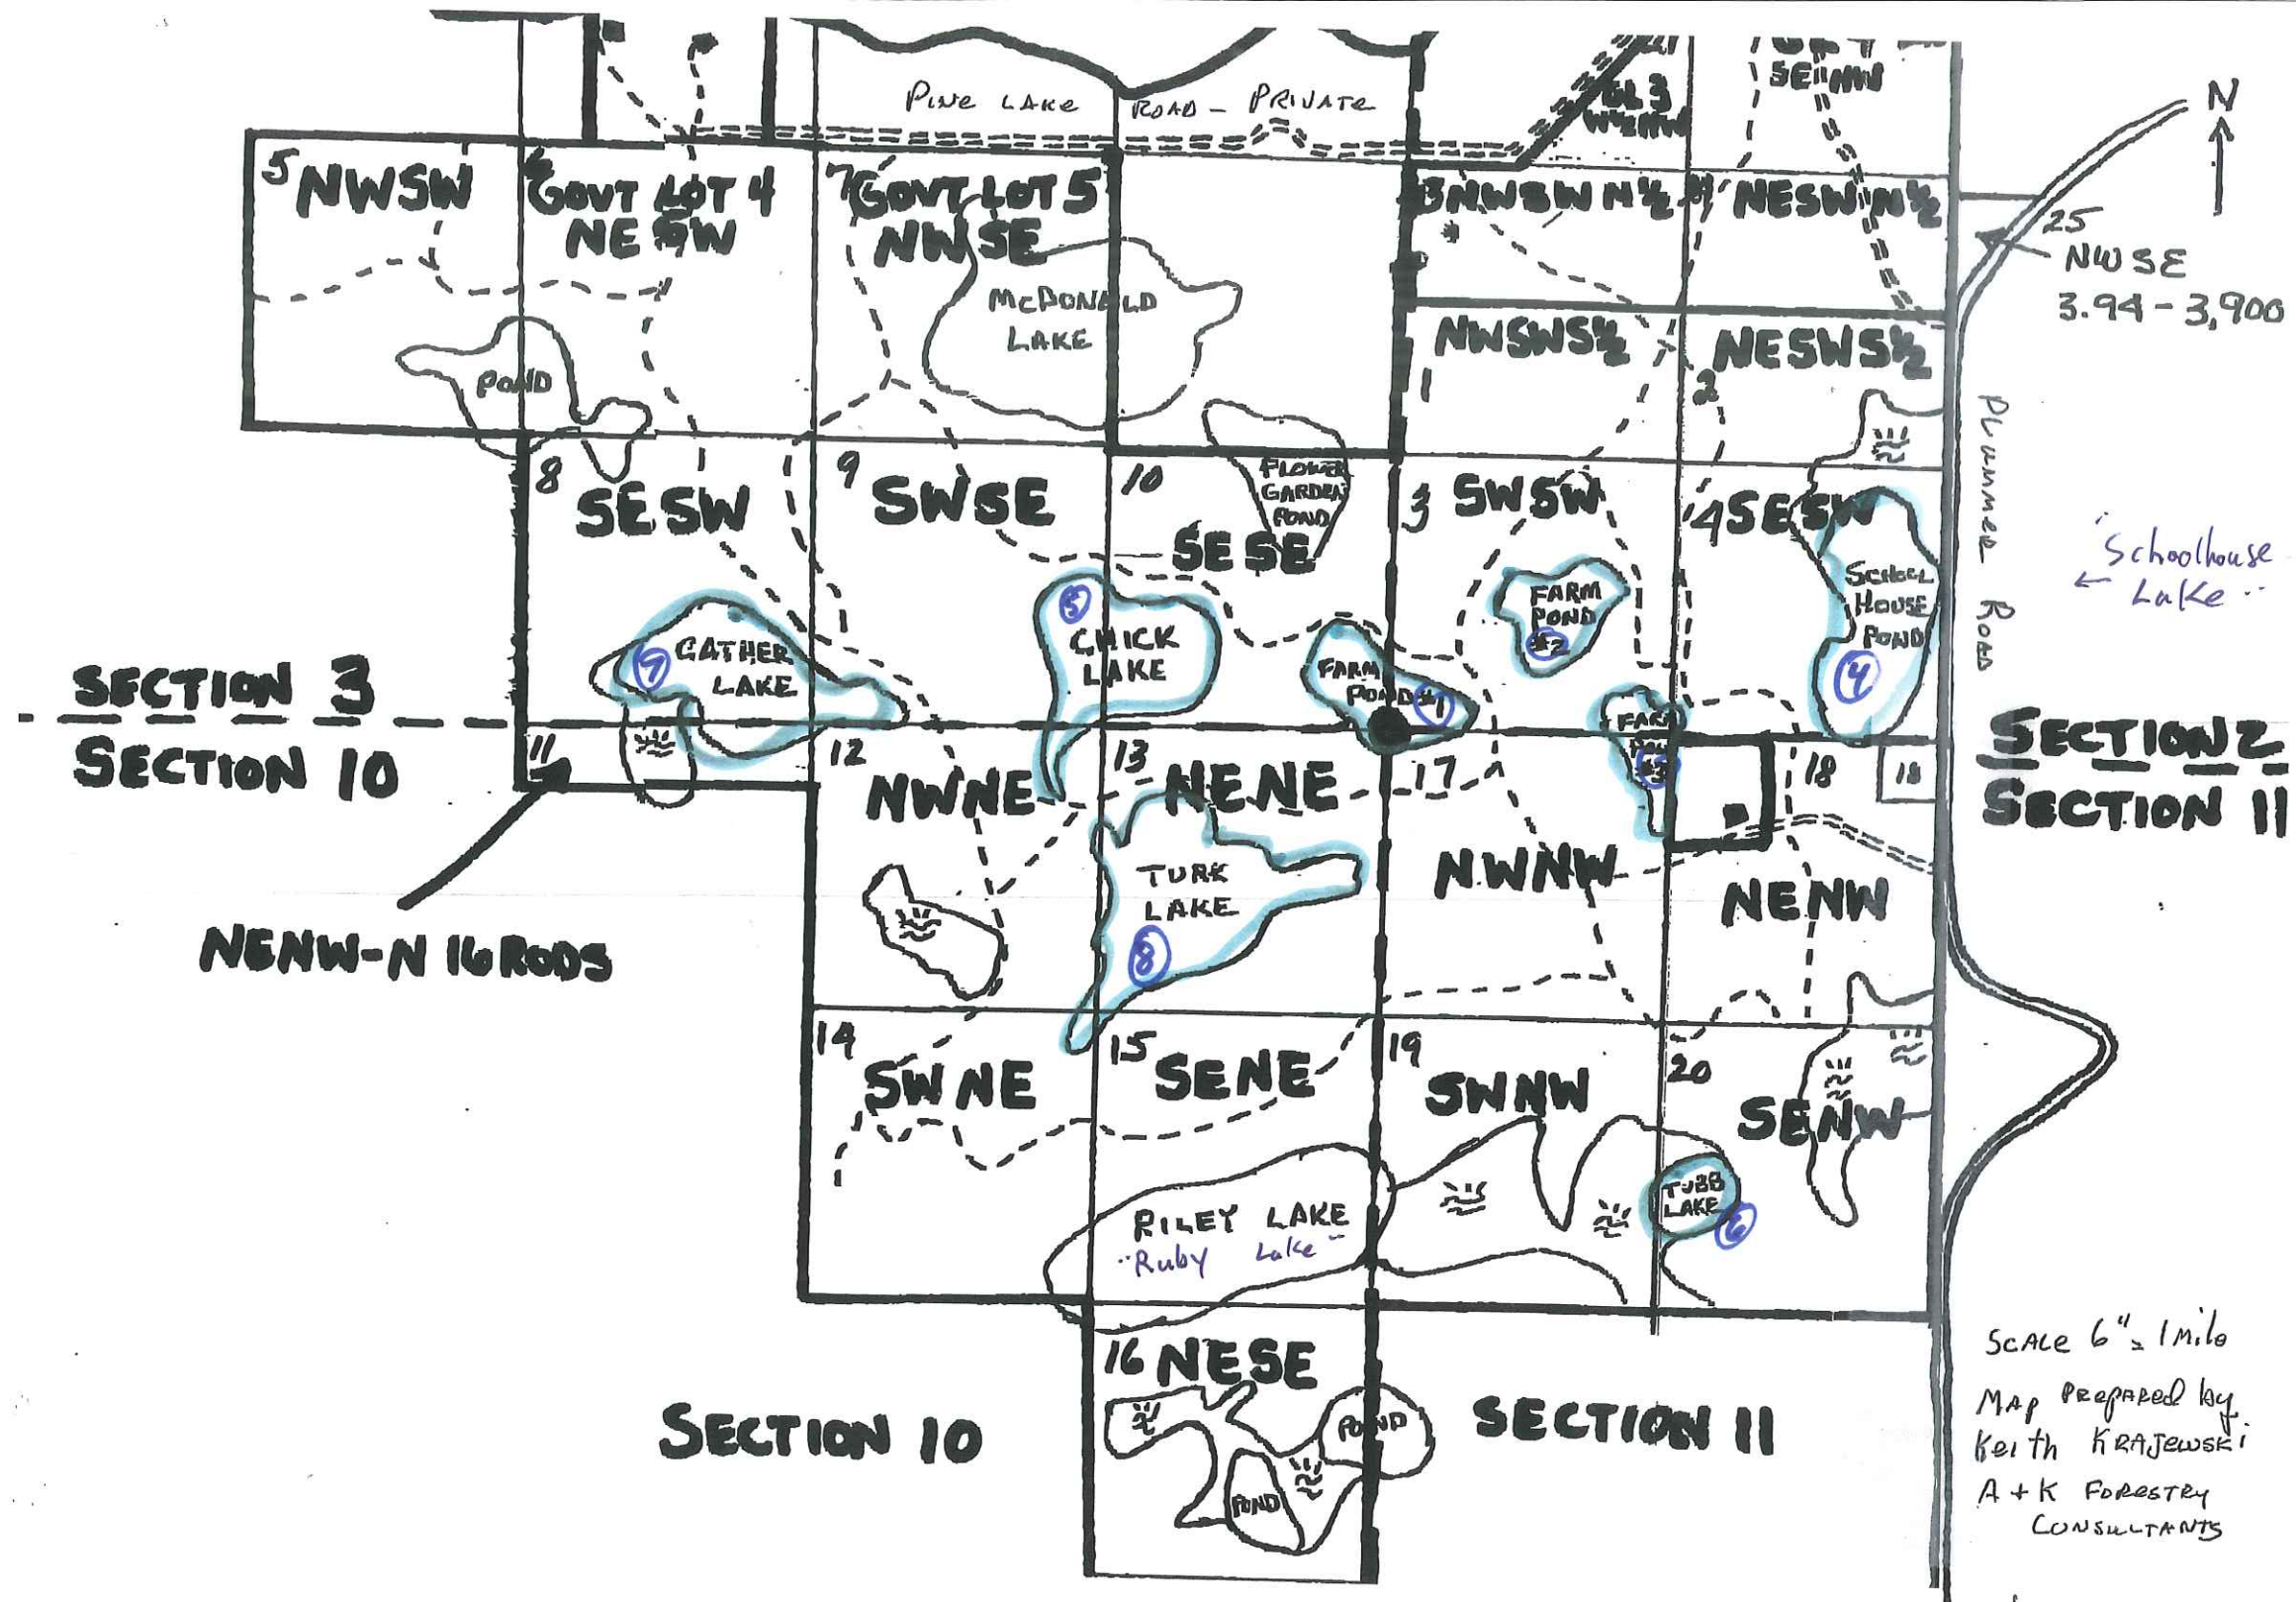 PINE LAKE ROAD - PRIVATE
GL 3
W½NW
SE NW
N
5 NWSW
6 GOVT LOT 4
NE SW
7 GOVT LOT 5
NWSE
NWSW N½
NESW N½
25
NWSE
3.94 - 3,900
McDONALD
LAKE
POND
NWSWS½
1
NESWS½
2
Plummer Road
8
SESW
9
SWSE
10
SESE
FLOWER
GARDEN
POND
3
SWSW
4 SESW
"Schoolhouse
← Lake"
SCHOOL
HOUSE
POND
4
FARM
POND
#2
5
CHICK
LAKE
7
GATHER
LAKE
FARM
POND #1
FARM
#3
SECTION 3
SECTION 10
SECTION 2
SECTION 11
11
12
NWNE
13
NENE
17
NWNW
18
18
NENW
NENW-N 16 RODS
TURK
LAKE
8
14
SWNE
15
SENE
19
SWNW
20
SENW
TUBB
LAKE
6
RILEY LAKE
"Ruby Lake"
16 NESE
POND
POND
SECTION 10
SECTION 11
SCALE 6" = 1 Mile
MAP PREPARED by
Keith KRAJEWSKI
A + K FORESTRY
CONSULTANTS